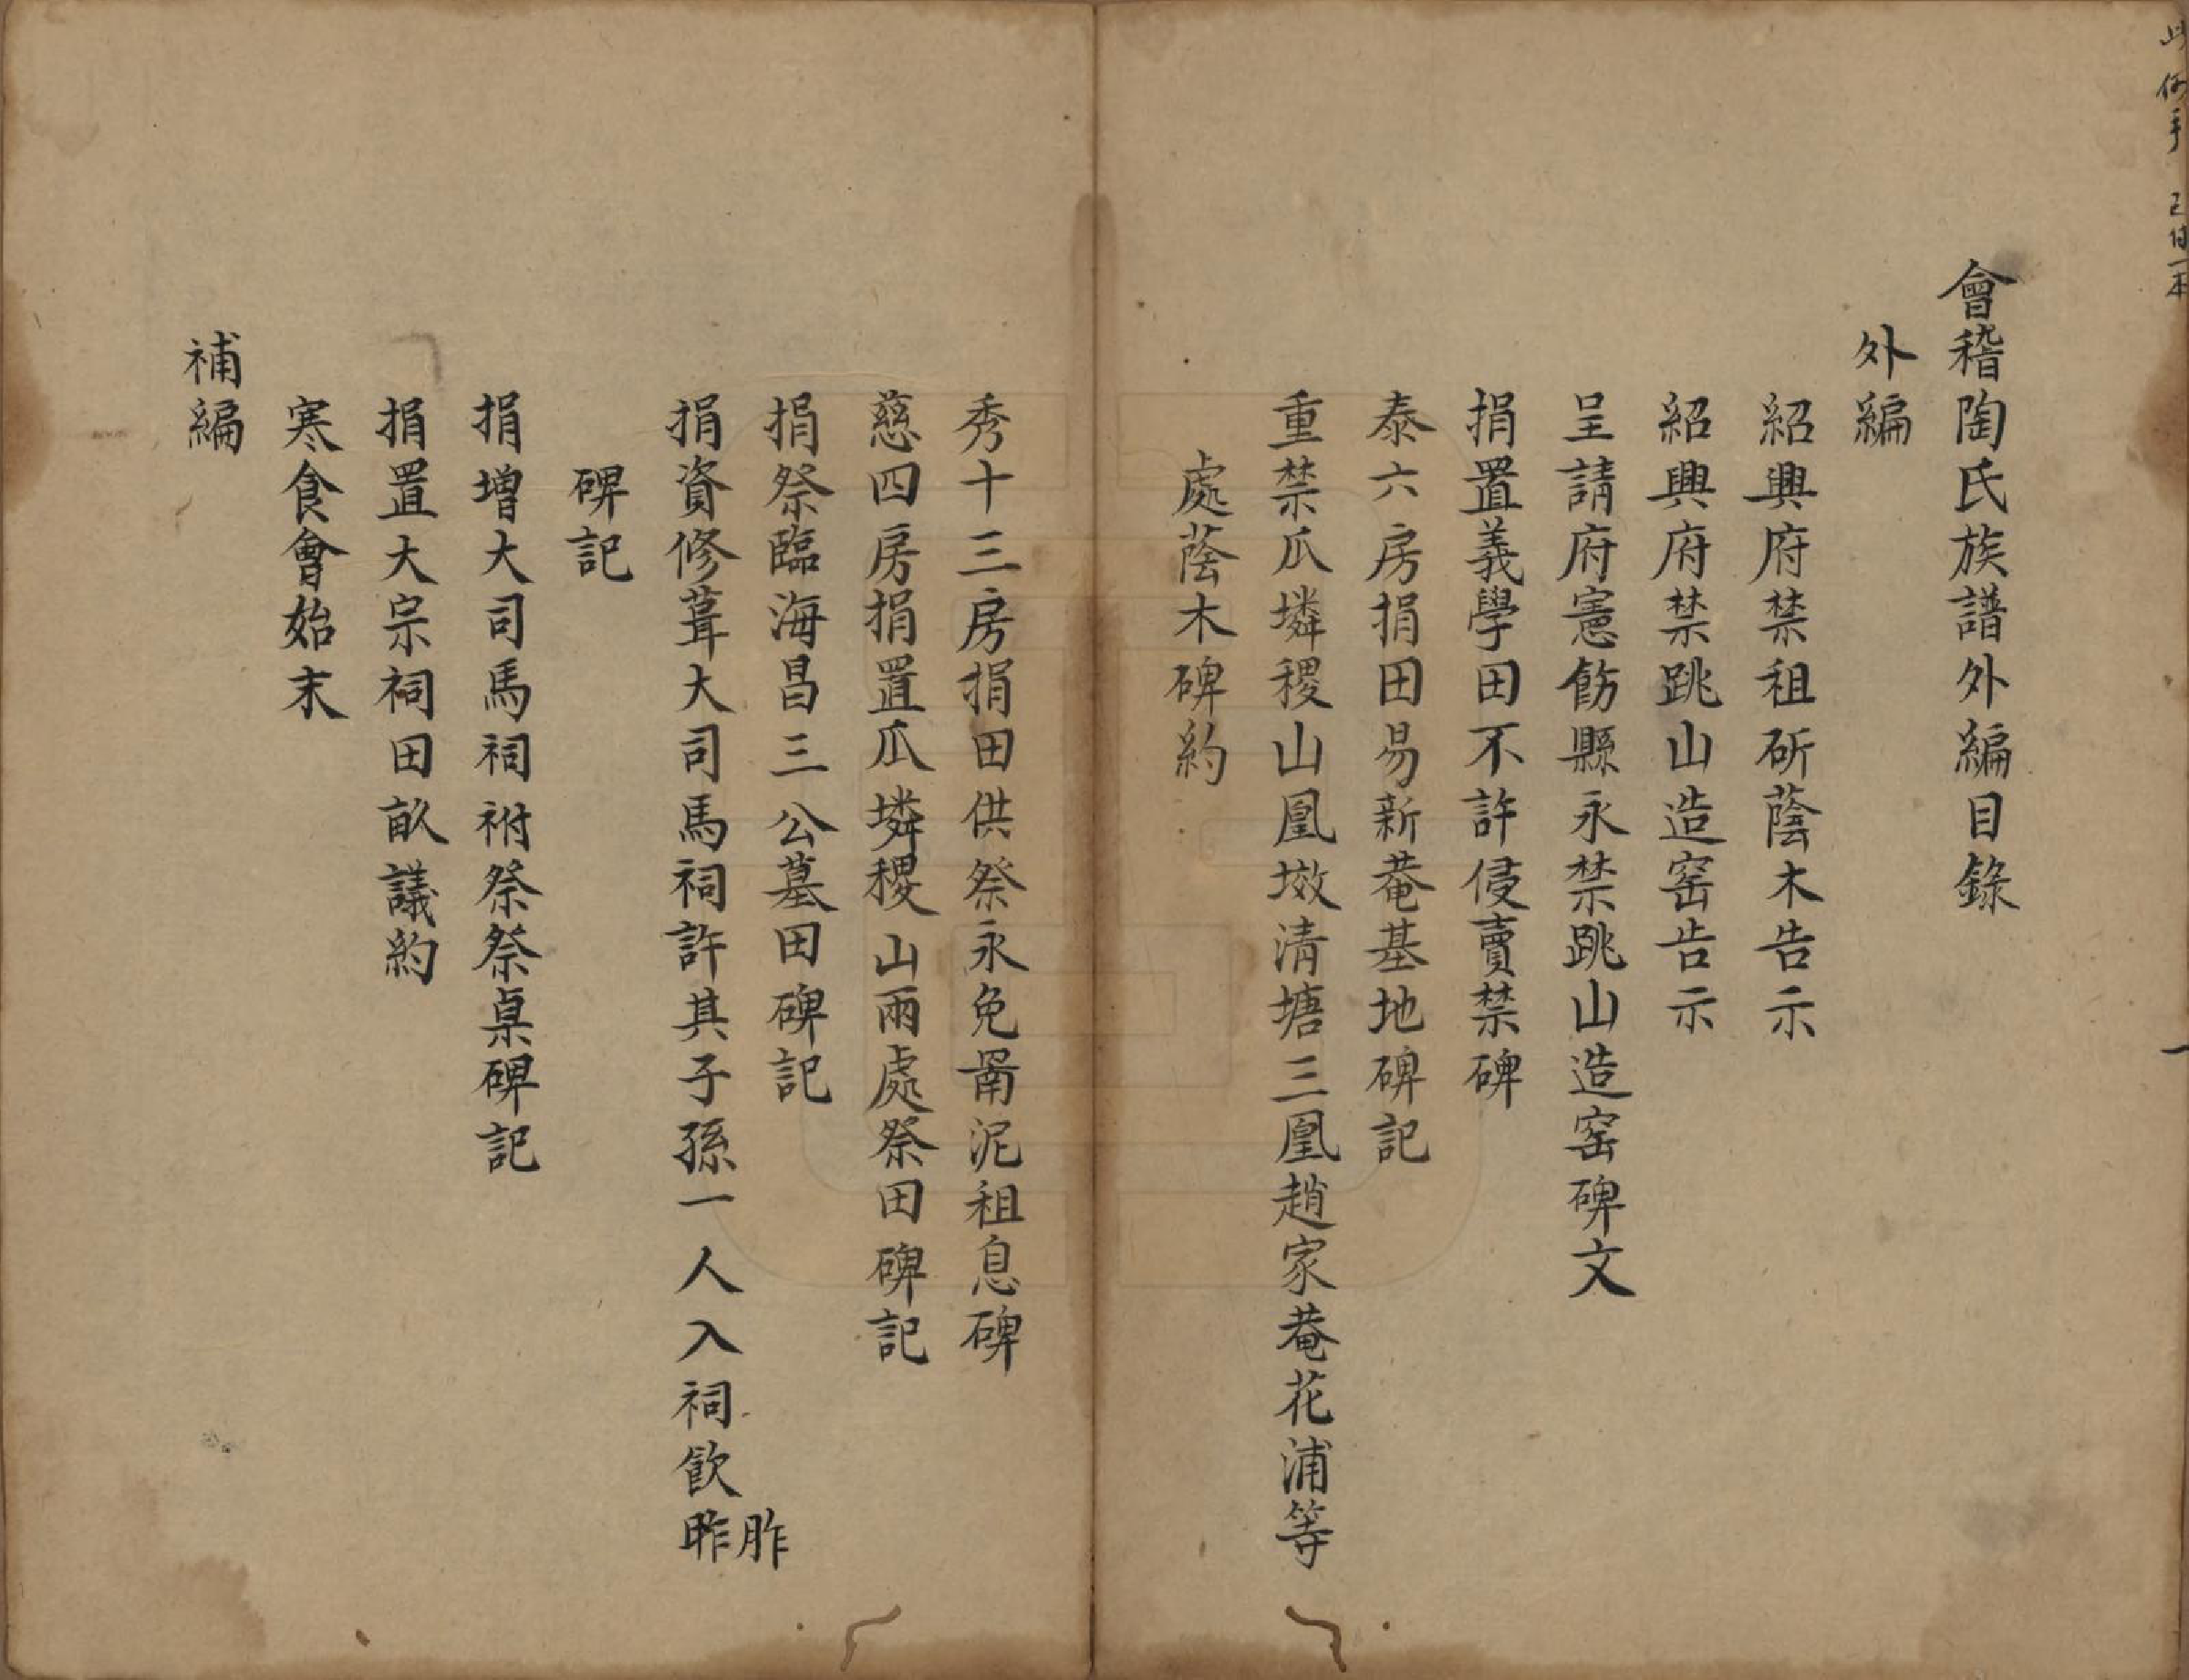 會稽陶氏族譜外編目錄
外編
紹興府禁租斫蔭木告示
紹興府禁跳山造窑告示
呈請府憲飭縣永禁跳山造窑碑文
捐置義學田不許侵賣禁碑
泰六房捐田易新菴基地碑記
重禁瓜墶稷山凰墩清塘三凰趙家菴花浦等
處蔭木碑約
秀十三房捐田供祭永免罱泥租息碑
慈四房捐置瓜墶稷山兩處祭田碑記
捐祭臨海昌三公墓田碑記
捐資修葺大司馬祠許其子孫一人入祠飲昨
胙
碑記
捐增大司馬祠祔祭祭桌碑記
捐置大宗祠田畝議約
寒食會始末
補編